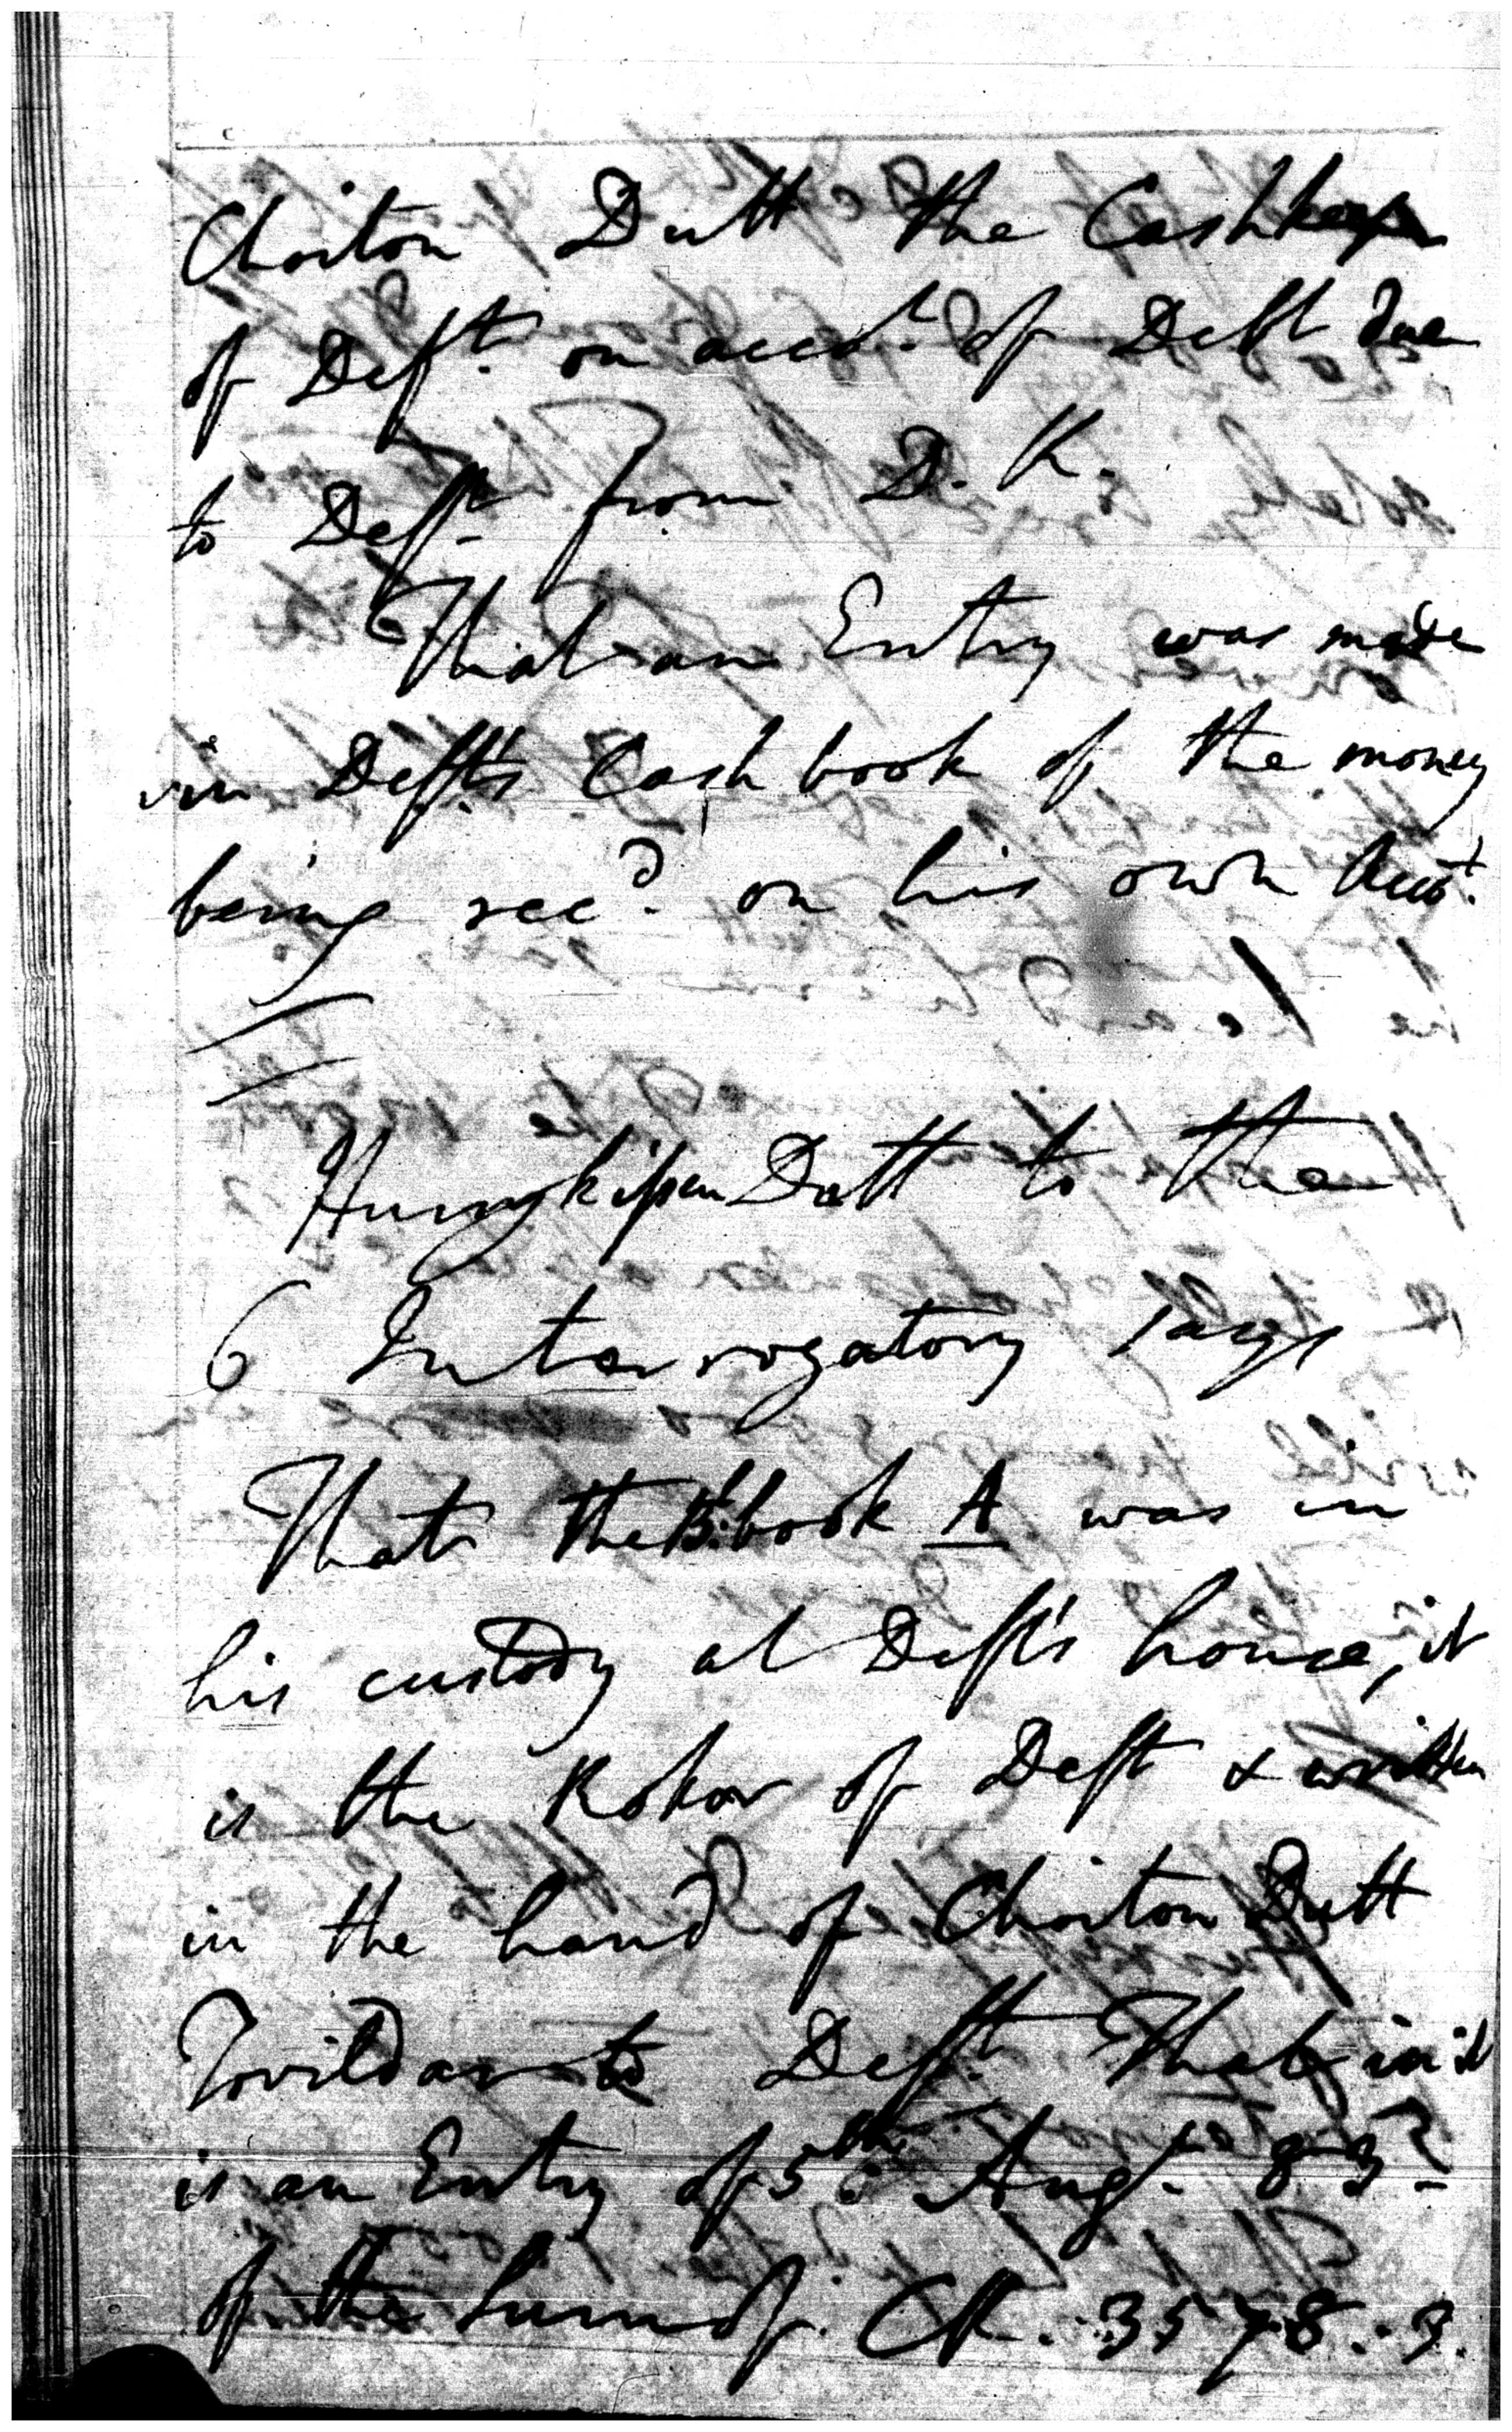 Choiton Dutt the Cashkeeper
of Deft. on accot. of Debt due
to Deft. from D. K.
That an Entry was made
in Deft's Cash book of the money
being recd. on his own Acct.
Hurrykissen Dutt to the
6 Interrogatory says
That the B. book A was in
his custody at Deft's house, it
is the Rokar of Deft & written
in the hand of Choiton Dutt
Tovildar to Deft. That in it
is an Entry of 5th Augt. 83 -
of the Sum of CR. 3578..3.